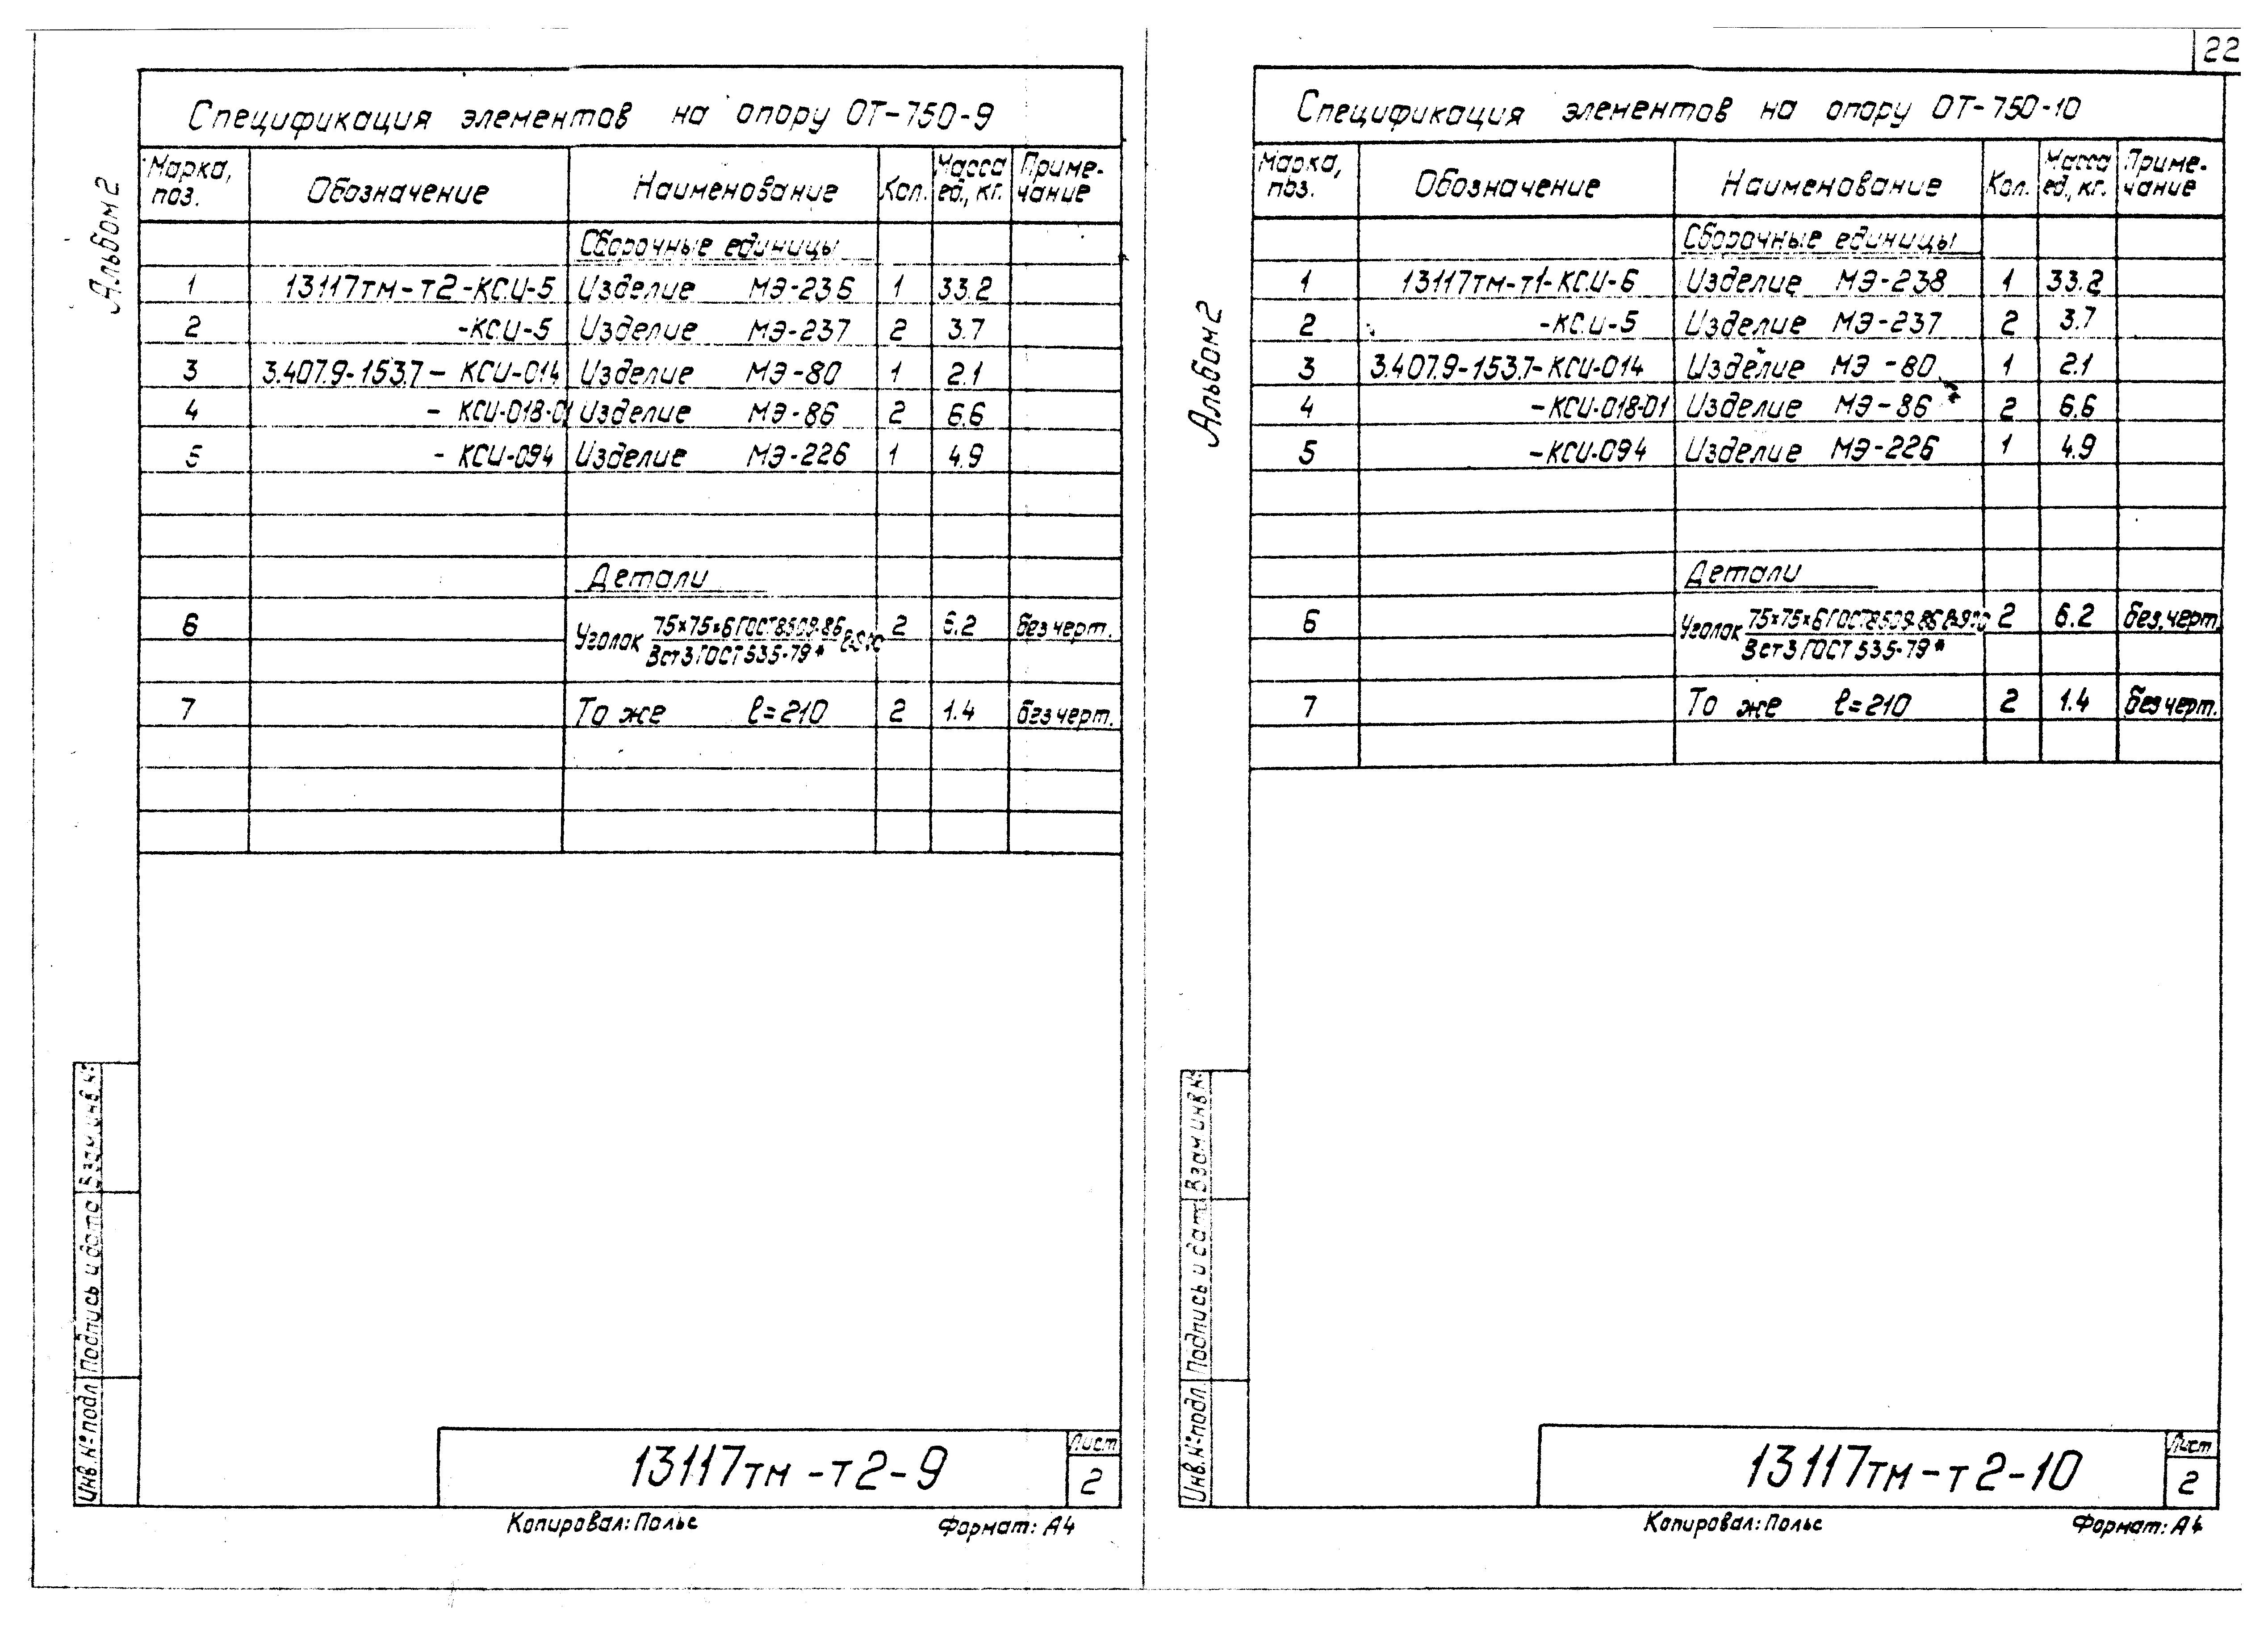 22
Альбом 2
Спецификация элементов на опору ОТ-750-9
Марка, поз. Обозначение Наименование Кол. Масса ед., кг. Примечание
Сборочные единицы
1 13117тм-т2-КС.И-5 Изделие МЭ-236 1 33.2
2 -КС.И-5 Изделие МЭ-237 2 3.7
3 3.407.9-153.7- КСИ-014 Изделие МЭ-80 1 2.1
4 - КСИ-018-01 Изделие МЭ-86 2 6.6
5 - КСИ-094 Изделие МЭ-226 1 4.9
Детали
6 Уголок 75×75×6 ГОСТ 8509-86 2 6.2 без черт.
Вст3 ГОСТ 535-79*
7 То же ℓ=210 2 1.4 без черт.
Взам инв №
Подпись и дата
Инв. № подл
13117тм-т2-9
Лист
2
Копировал: Польс Формат: А4
Альбом 2
Спецификация элементов на опору ОТ-750-10
Марка, поз. Обозначение Наименование Кол. Масса ед., кг. Примечание
Сборочные единицы
1 13117тм-т1-КС.И-6 Изделие МЭ-238 1 33.2
2 -КС.И-5 Изделие МЭ-237 2 3.7
3 3.407.9-153.7-КСИ-014 Изделие МЭ-80 1 2.1
4 -КСИ-018-01 Изделие МЭ-86 2 6.6
5 -КСИ-094 Изделие МЭ-226 1 4.9
Детали
6 Уголок 75×75×6 ГОСТ 8509-86 2 6.2 без.черт.
Вст3 ГОСТ 535-79*
7 То же ℓ=210 2 1.4 без черт.
Взам инв №
Подпись и дата
Инв. № подл.
13117тм-т2-10
Лист
2
Копировал: Польс Формат: А4